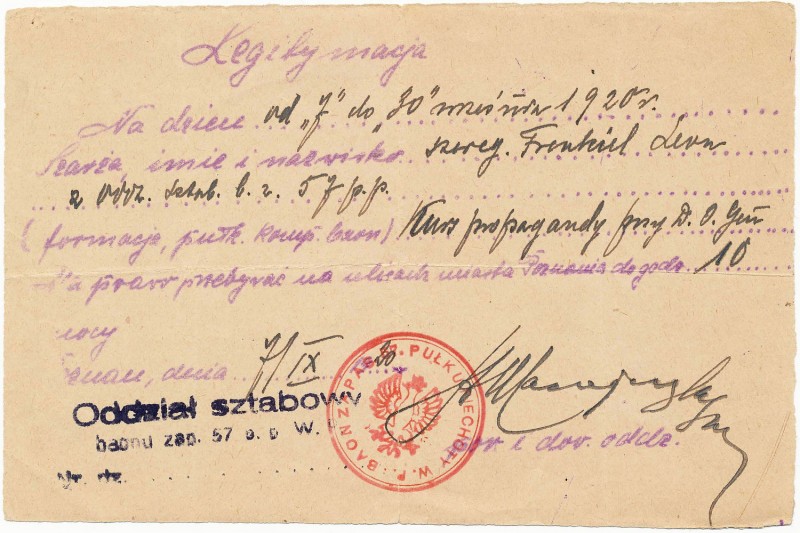 Legitymacja
Na dzień od „7” do „30” września 1920 r.
Szarża, imię i nazwisko szereg. Frenkiel Leon
z oddz. sztab. b. z. 57 p.p.
(formacja, pułk. komp. baon) Kurs propagandy przy D. O. Gen
Ma prawo przebywać na ulicach miasta Poznania do godz. 10
nocy
znań, dnia 7/IX 20
Oddział sztabowy
baonu zap. 57 p. p. W.
Nr. dz.
BAON ZAPAS. 57. PUŁKU PIECHOTY W.P.
por. i dow. oddz.